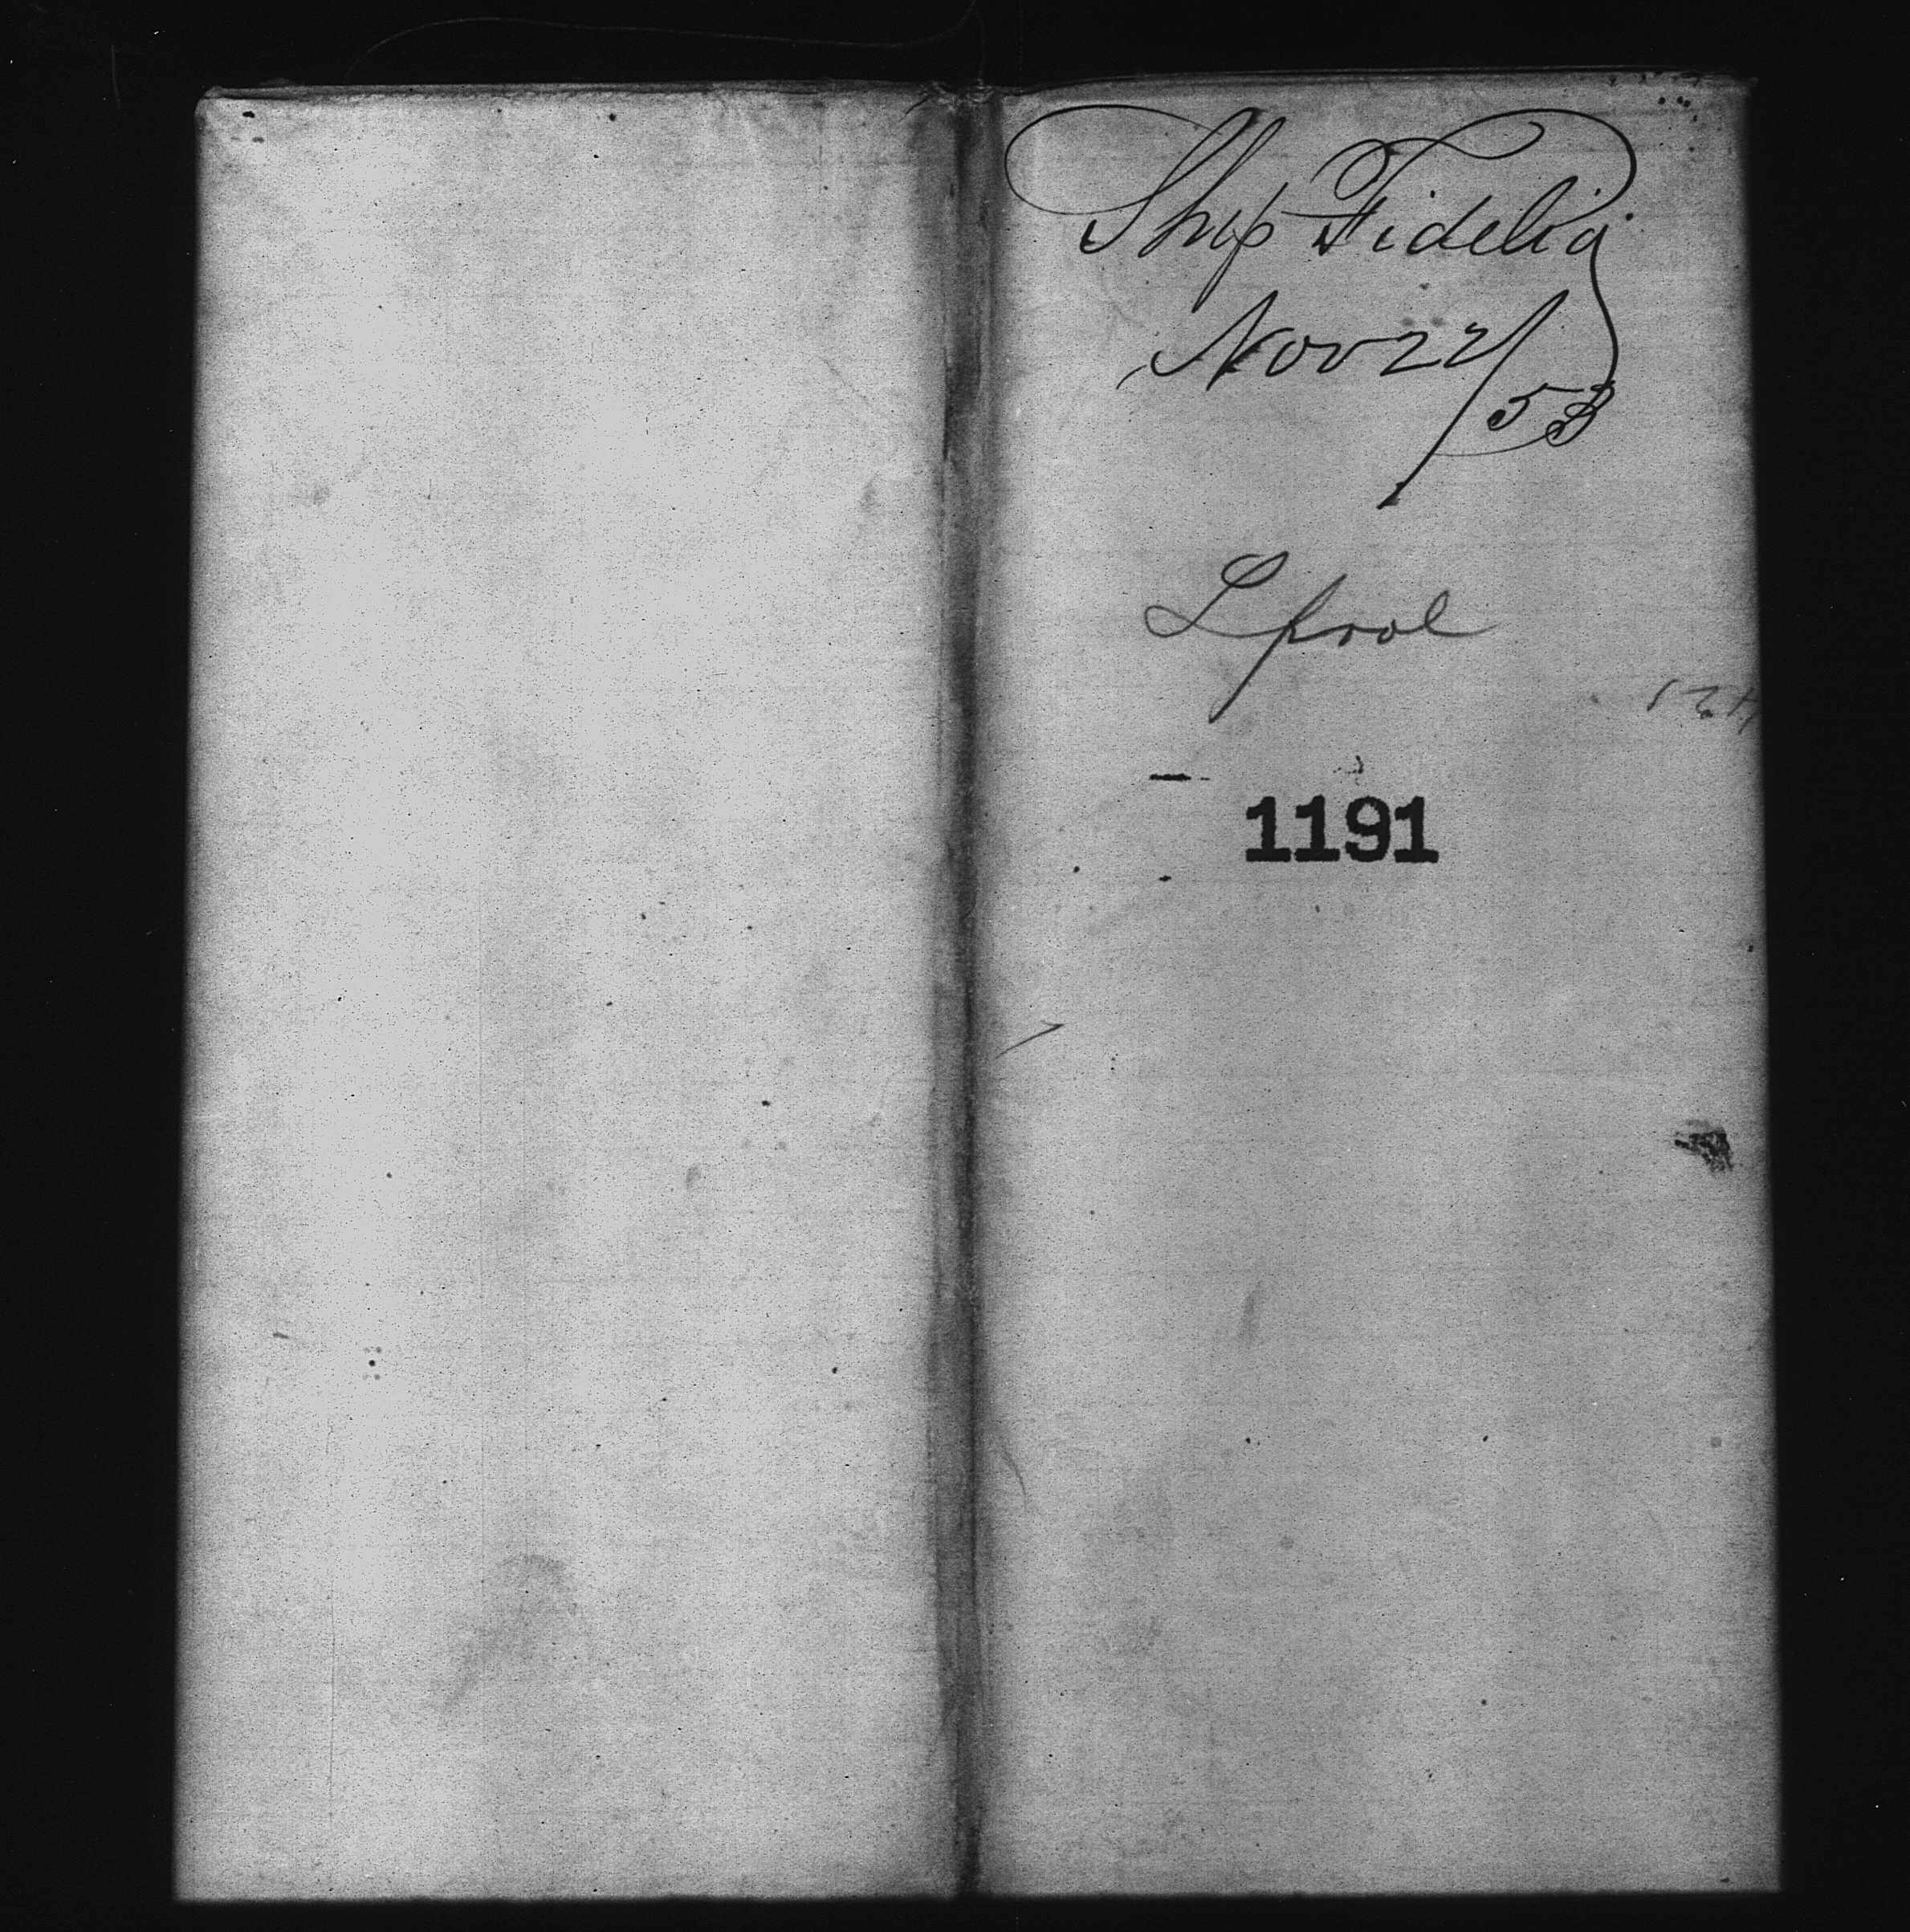 Ship Fidelia
Nov 22/53
Lpool
1191